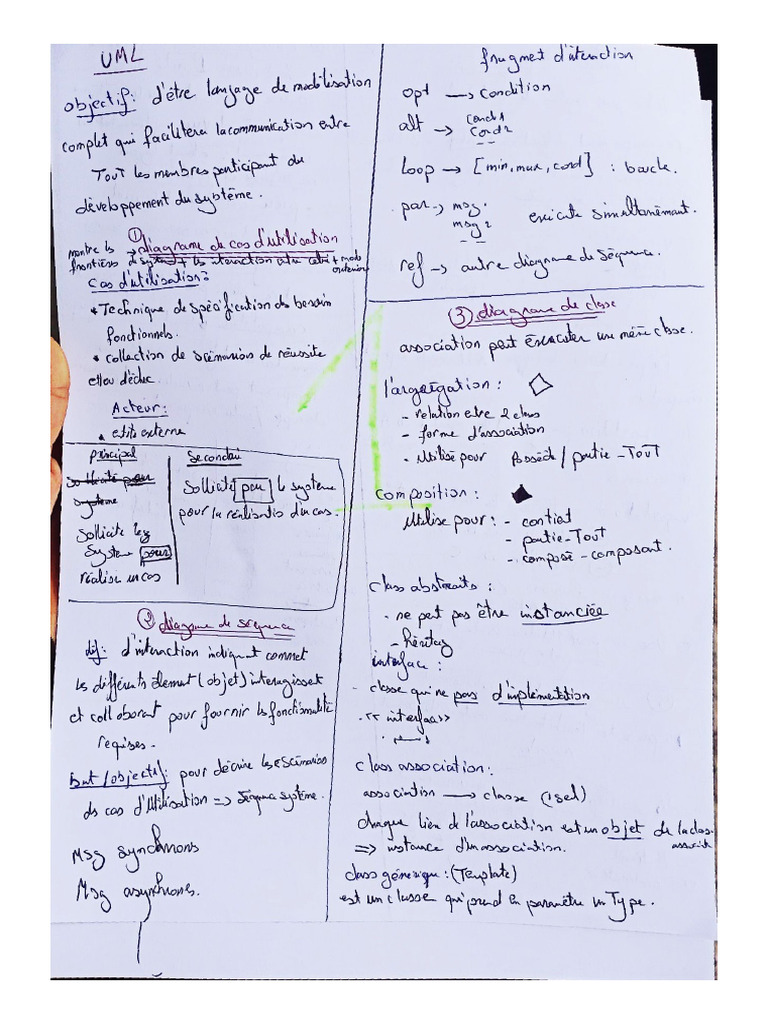 UML
objectif: d'être langage de modélisation
complet qui facilitera la communication entre
Tout les membres participant du
développement du système.
① diagrame de cas d'utilisation
montre les frontières système + les interaction entre +
Cas d'utilisation:
* Technique de spécification des besoin
fonctionnels.
* collection de scénarios de réussite
et/ou d'échec.
Acteur:
• entité externe
principal
sollicite pour
système
sollicite les
système pour
réaliser un cas
Secondaire
sollicité par le système
pour la réalisation d'un cas.
② diagrame de séquence
def: d'interaction indiquant comment
les différents élement (objet) interagissent
et collaborent pour fournir les fonctionnalité
requises.
but/objectif: pour décrire les scénarios
des cas d'utilisation => séquence système.
Msg synchrones
Msg asynchrones.
fragment d'interaction
opt → condition
alt → cond1
cond2
--
loop → [min, max, cond] : boucle.
par → msg1
msg2
--
exécute simultanément.
ref → autre diagrame de séquence.
③ diagrame de classe
association peut une même classe.
l'agrégation:
- relation entre 2 class
- forme d'association
- utilisé pour Possède / partie-Tout
composition:
utilise pour: - contient
- partie-Tout
- composé-composant.
class abstraits:
- ne peut pas être instanciée
- héritage
interface:
- classe qui ne pas d'implémentation
- << interface >>
class association:
association → classe (1 seul)
chaque lien de l'association est un objet de la class
associat
=> instance d'un association.
class générique: (Template)
est un classe qui prend en paramètre un Type.